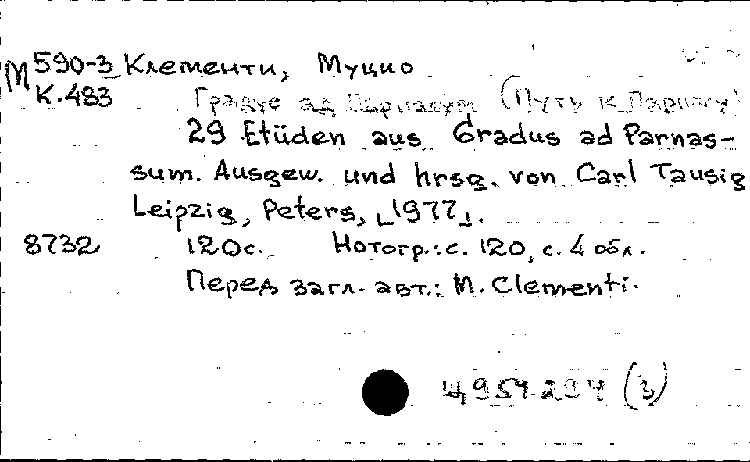 М 590-3 Клементи, Муцио
К.483 Градус ад Парнасум (Путь к Парнасу)
29 Etüden aus Gradus ad Parnas-
sum. Ausgew. und hrsg. von Carl Tausig
Leipzig, Peters, [1977].
8732 120с. Нотогр.: с. 120, с. 4 обл.
Перед загл. авт.: M. Clementi.
Ц951.294 (3)